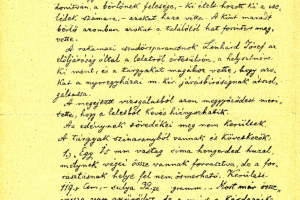 honitván, a bérlőnek felesége, ki ételt hozott ki a cse-
lédek számára, – azokat haza vitte. A kint maradt
bérlő azonban azokat a találótól hat forintért meg-
vette.
A rakamazi csendőrparancsnok Lénhárd József az
előljáróság által a leletről értesülvén, a helyszínre
ki ment, és a tárgyakat magához vette, hogy azo-
kat a nyíregyházai m. kir. járásbíróságnak átad-
janak.
A megejtett vizsgálatból azon meggyőződést merí-
tette, hogy a leletből kevés hiányozhatik.
Az edénynek töredékei meg nem kerültek.
A tárgyak színaranyból vannak és következők:
1., Egy 15 mm vastag sima hengerded huzal,
melynek végei össze vannak forrasztva, de a for-
rasztásnak helye fel nem ismerhető. Kerülete
119.5 Cm, – sulya 39.2 gramm. – Most már össze